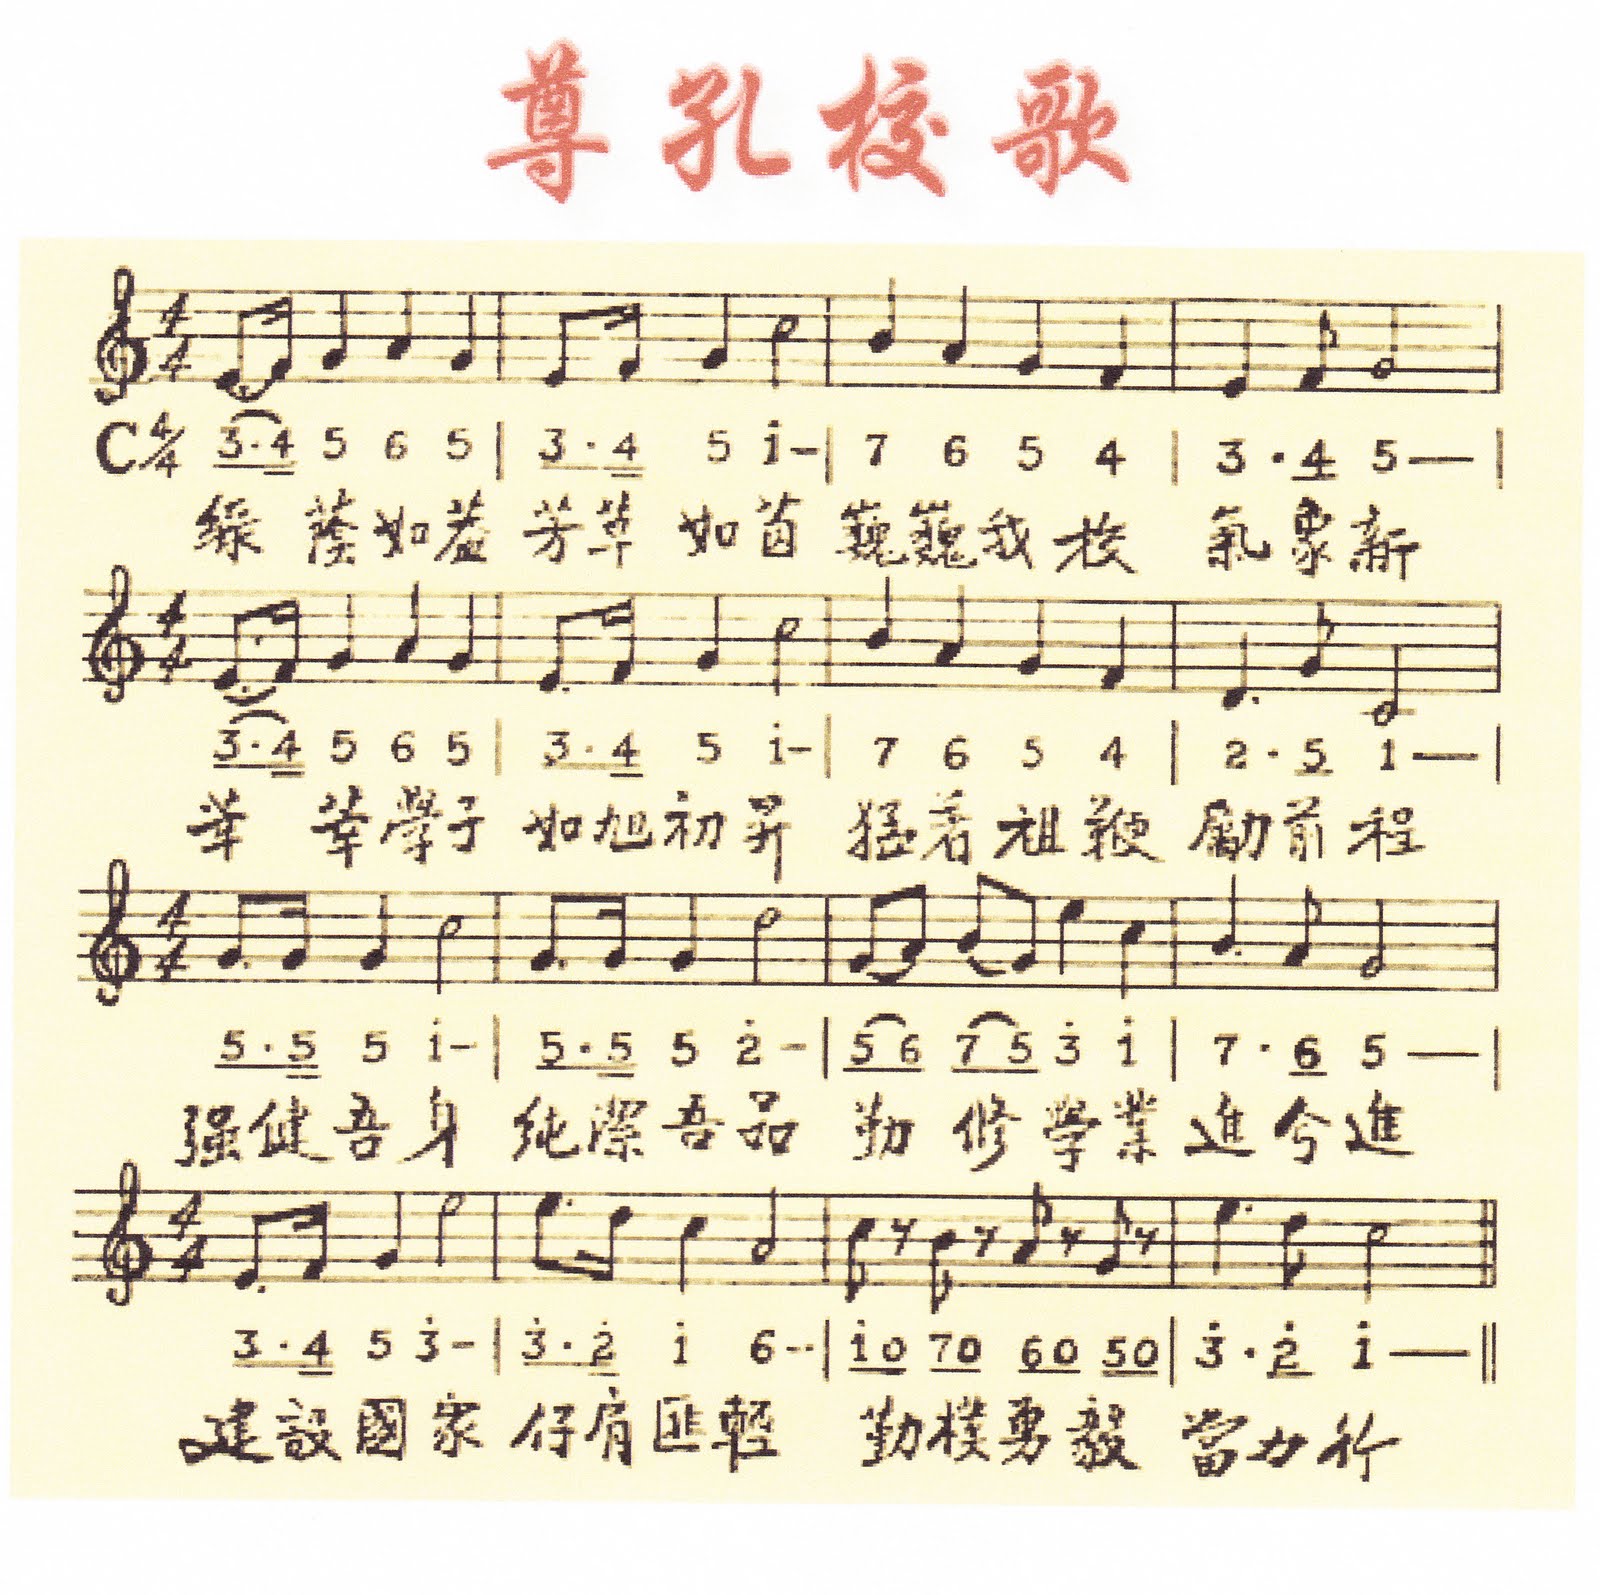 尊孔校歌
4 4
C 4/4 3·4 5 6 5 | 3·4 5 i- | 7 6 5 4 | 3·4 5— |
綠蔭如蓋 芳草如茵 巍巍我校 氣象新
4 4
3·4 5 6 5 | 3·4 5 i- | 7 6 5 4 | 2·5 1— |
莘莘學子 如旭初昇 猛着祖鞭 勵前程
4 4
5·5 5 i- | 5·5 5 2̇- | 5 6 7 5 3̇ i | 7·6 5— |
强健吾身 純潔吾品 勤修學業 進兮進
4 4
3·4 5 3̇- | 3̇·2̇ i 6-- | i0 70 60 50 | 3̇·2̇ i— ‖
建設國家 仔肩匪輕 勤樸勇毅 當力行